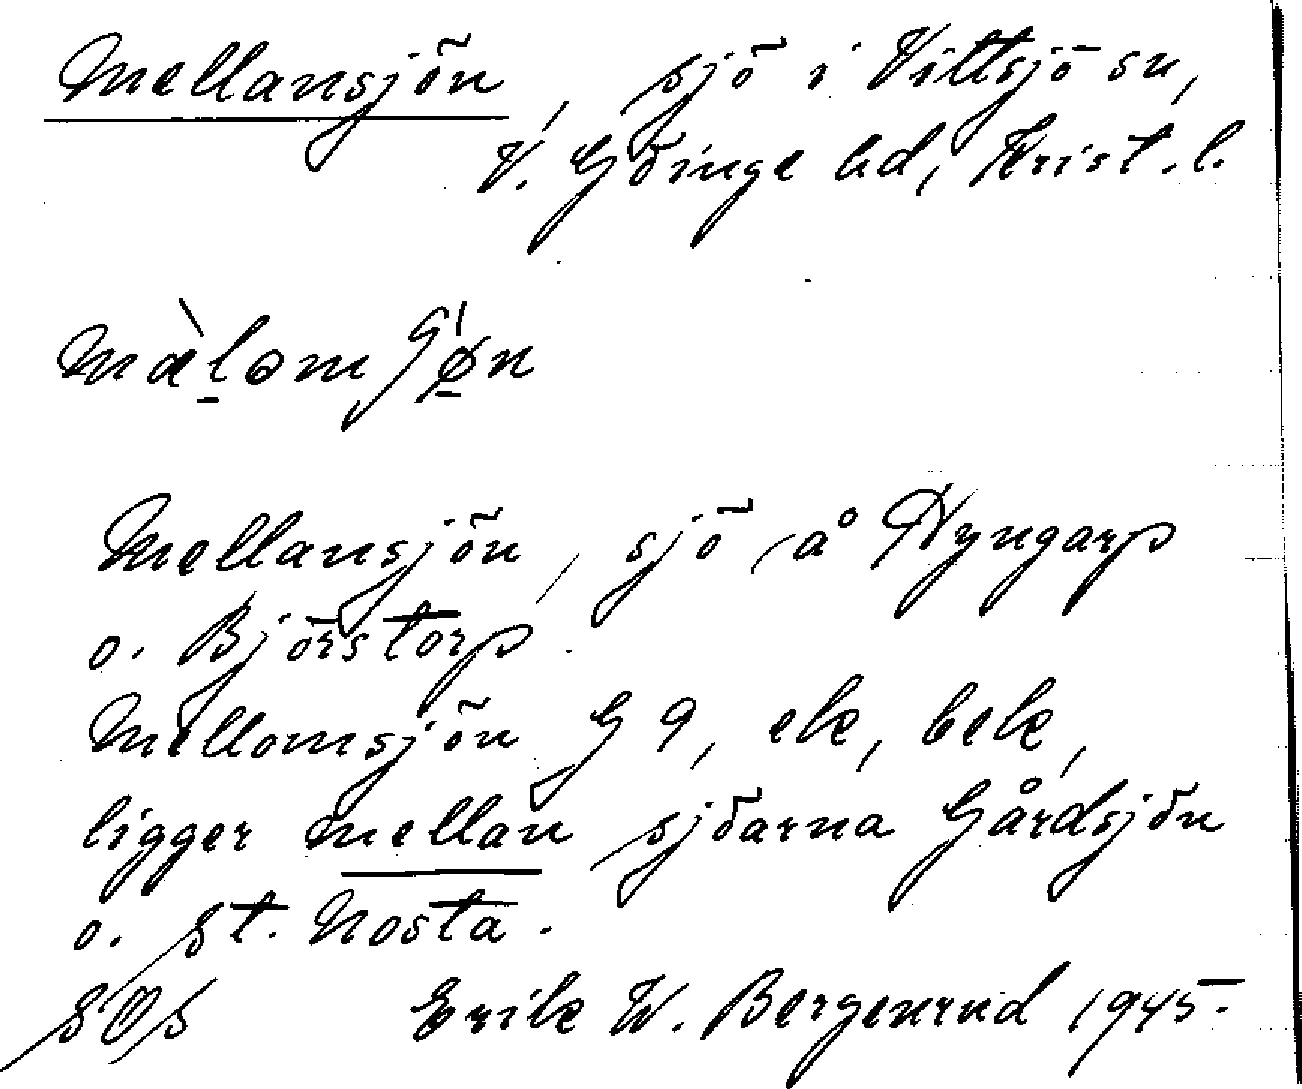 Mellansjön, sjö i Vittsjö sn,
V. Göinge hd, Krist. l.
Mellansjön, sjö å Hyngarp
o. Björstorp.
Mellomsjön G 9, ek, bek,
ligger mellan sjöarna Gårdsjön
o. St. Nosta.
SOS Erik W. Bergenrud 1945.